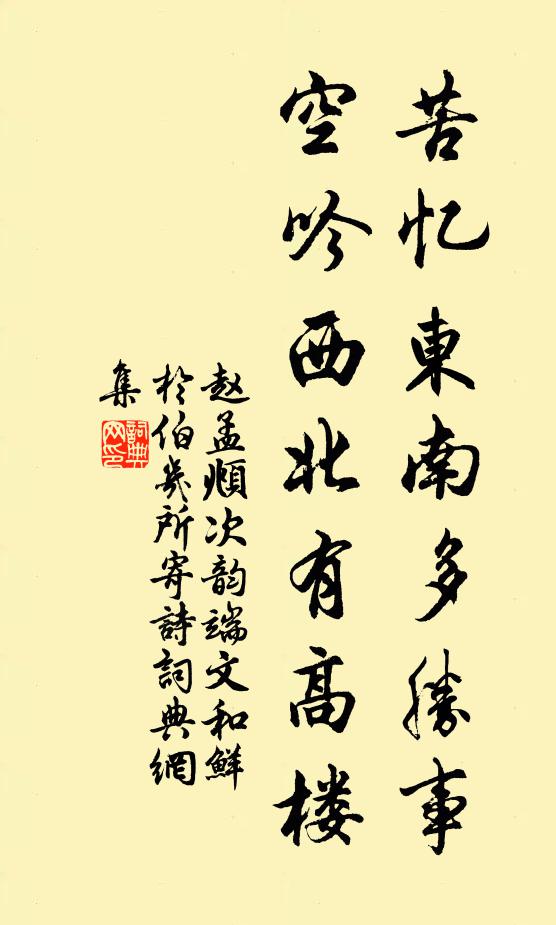 苦忆東南多勝事
空吟西北有高楼
赵孟頫次韵端文和鮮
於伯幾所寄詩詞典網
集
詞典
网印